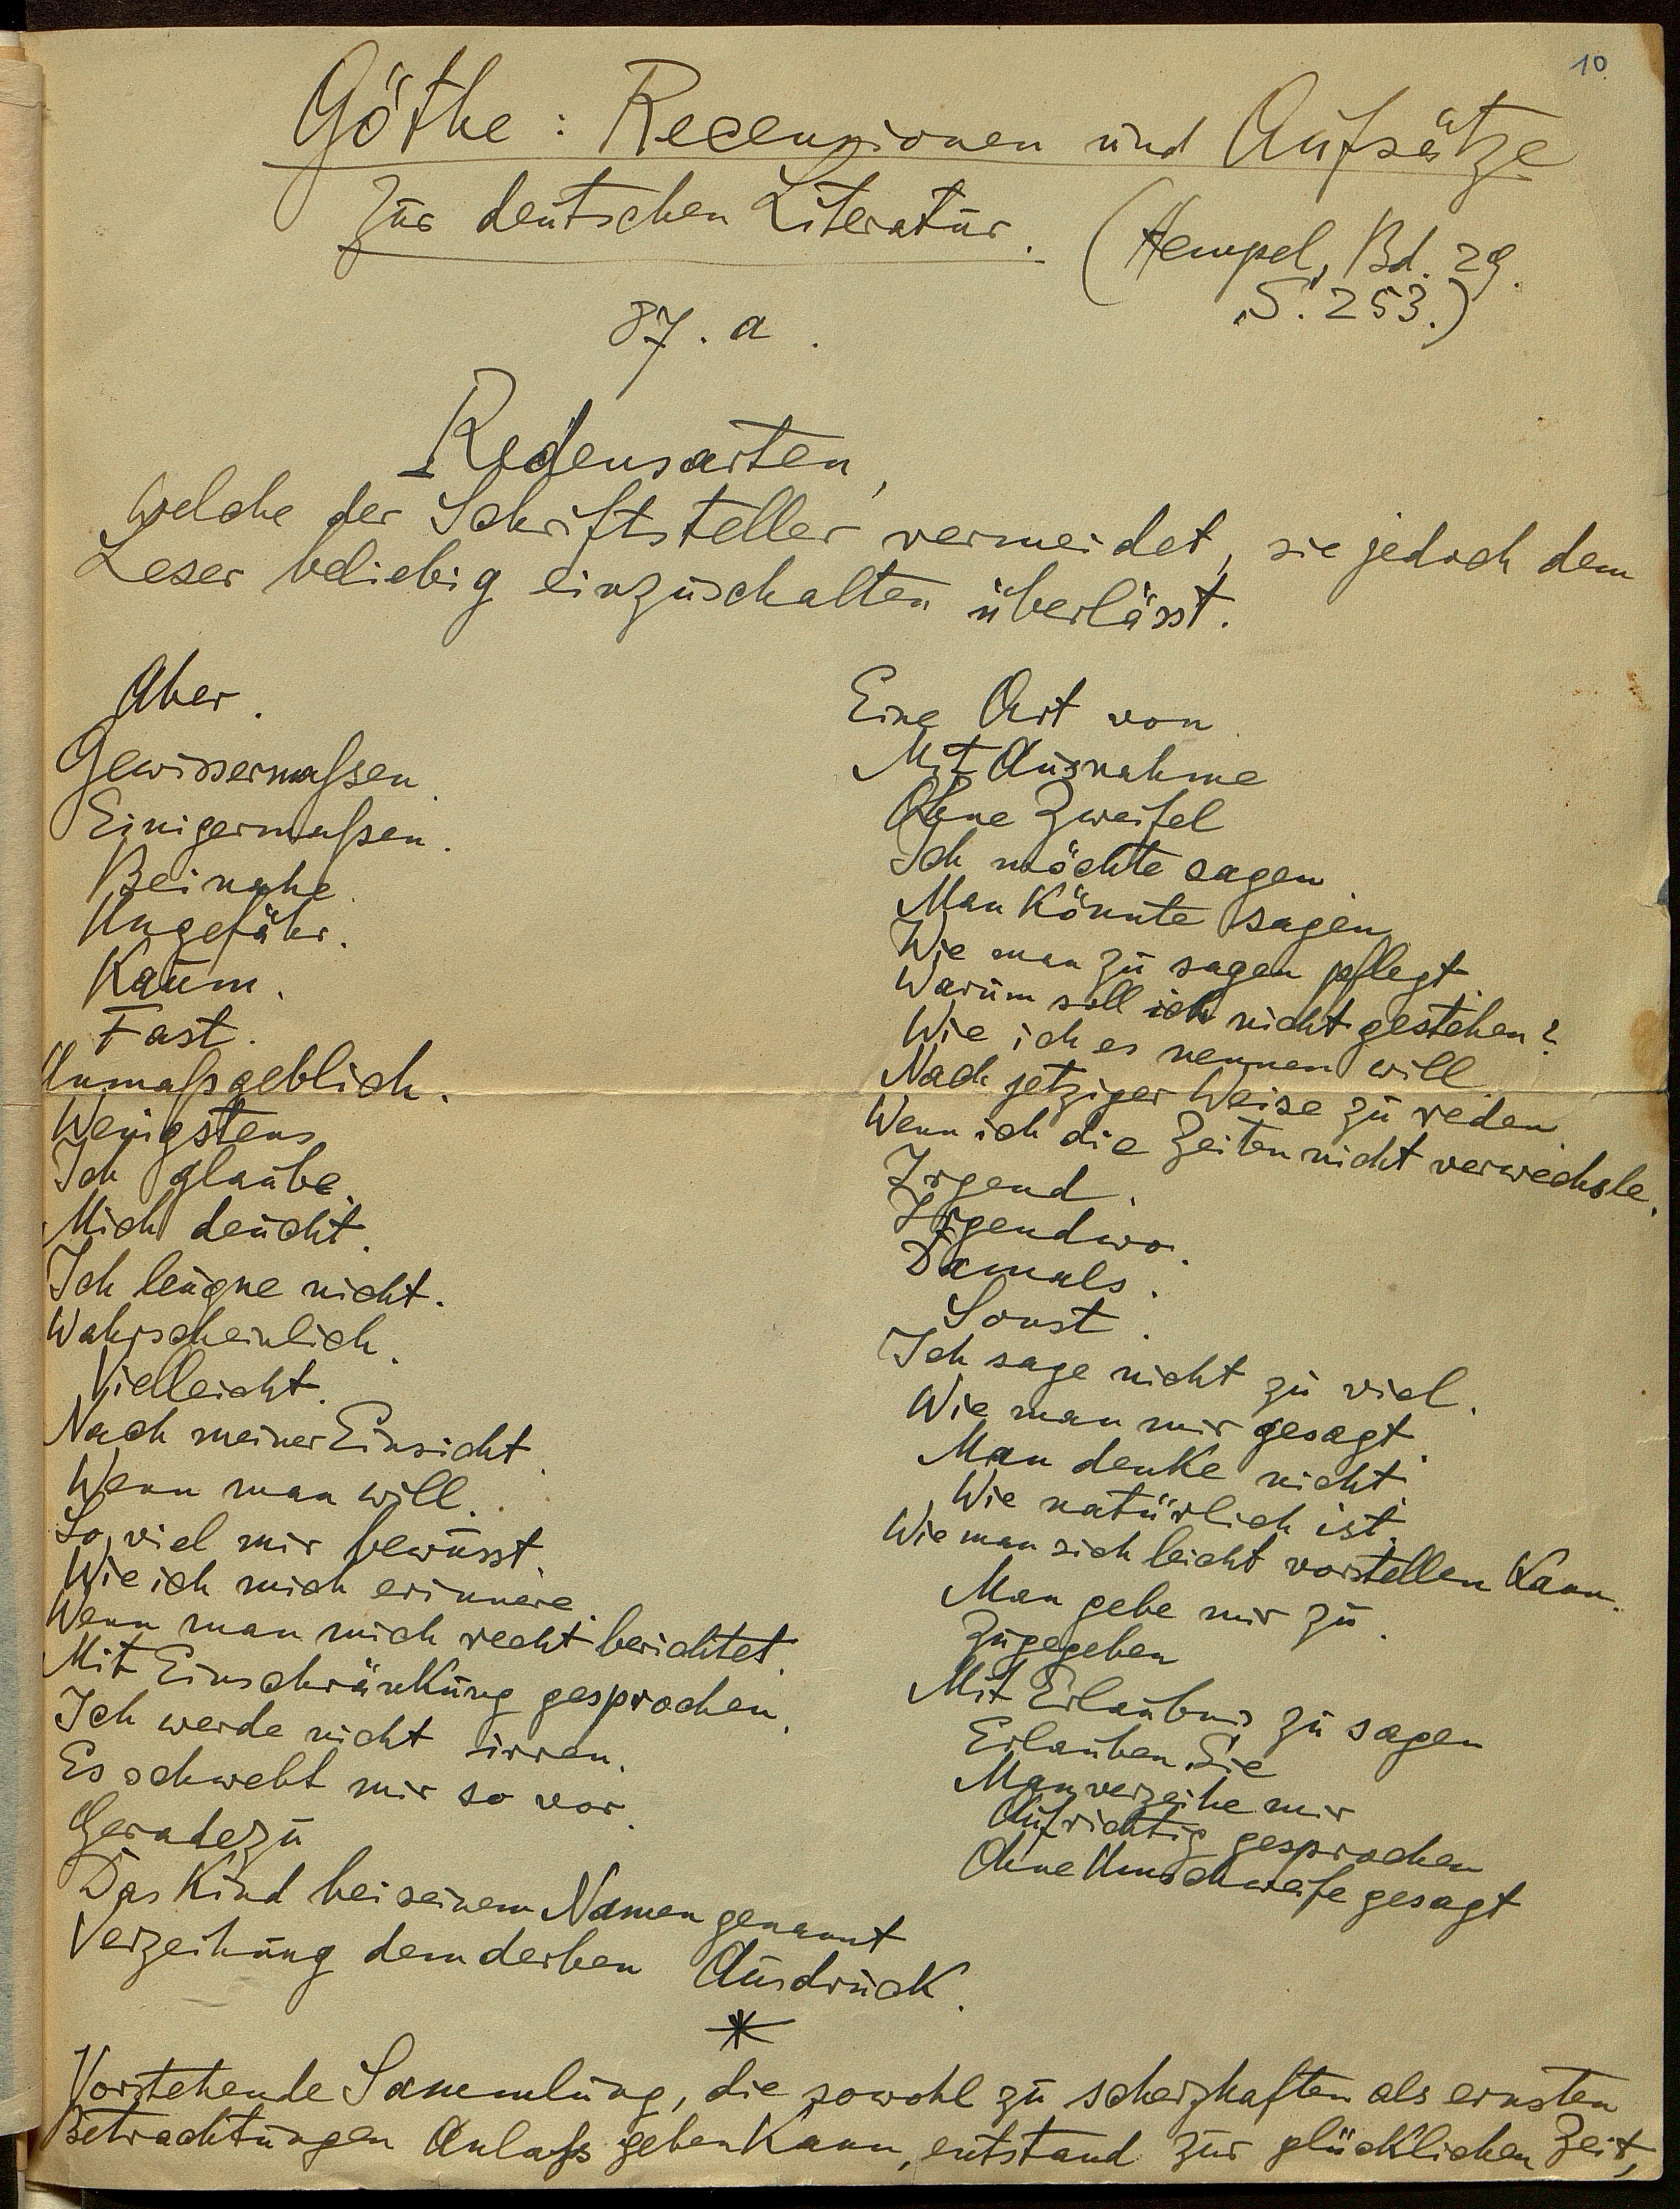 10
Göthe: Recensionen und Aufsätze
zur deutschen Literatur.
(Hempel, Bd. 29.
S. 253.)
87. a.
Redensarten,
welche der Schriftsteller vermeidet, sie jedoch dem
Leser beliebig einzuschalten überlässt.
Aber.
Gewissermaßen.
Einigermaßen.
Beinahe.
Ungefähr.
Kaum.
Fast.
Unmaßgeblich.
Wenigstens
Ich glaube.
Mich deucht.
Ich leugne nicht.
Wahrscheinlich.
Vielleicht.
Nach meiner Einsicht.
Wenn man will.
So viel mir bewusst.
Wie ich mich erinnere.
Wenn man mich recht berichtet.
Mit Einschränkung gesprochen.
Ich werde nicht irren.
Es schwebt mir so vor.
Geradezu
Das Kind bei seinem Namen genannt
Verzeihung dem derben Ausdruck.
Eine Art von
Mit Ausnahme
Ohne Zweifel
Ich möchte sagen.
Man könnte sagen
Wie man zu sagen pflegt.
Warum soll ich nicht gestehen?
Wie ich es nennen will
Nach jetziger Weise zu reden.
Wenn ich die Zeiten nicht verwechsle.
Irgend.
Irgendwo.
Damals.
Sonst.
Ich sage nicht zu viel.
Wie man mir gesagt.
Man denke nicht
Wie natürlich ist.
Wie man sich leicht vorstellen kann.
Man gebe mir zu.
Zugegeben
Mit Erlaubnis zu sagen
Erlauben Sie
Man verzeihe mir
Aufrichtig gesprochen
Ohne Umschweife gesagt
*
Vorstehende Sammlung, die sowohl zu scherzhaften als ernsten
Betrachtungen Anlaß geben kann, entstand zur glücklichen Zeit,